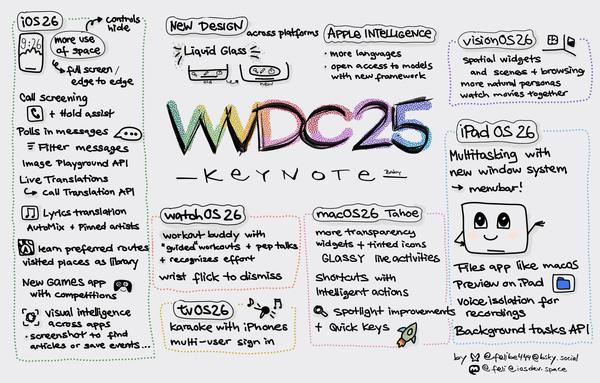 iOS 26
controls
hide
9:26
more use
of space
full screen/
edge to edge
Call screening
+ Hold assist
Polls in messages
Filter messages
Image Playground API
Live Translations
Call Translation API
Lyrics translation
AutoMix + Pinned artists
learn preferred routes
visited places as library
New Games app
with competitions
visual intelligence
across apps
• screenshot to find
articles or save events...
NEW DESIGN across platforms
Liquid Glass
old
new
APPLE INTELLIGENCE
• more languages
• open access to models
with new framework
WWDC25
— KEYNOTE —
watchOS 26
workout buddy with
"guided" workouts + pep talks
+ recognizes effort
wrist flick to dismiss
tvOS26
karaoke with iPhones
multi-user sign in
macOS26 Tahoe
more transparency
widgets + tinted icons
GLASSY live activities
Shortcuts with
Intelligent actions
Spotlight improvements
+ Quick Keys
visionOS 26
spatial widgets
and scenes + browsing
more natural personas
watch movies together
iPad OS 26
Multitasking with
new window system
→ menubar!
Files app like macOS
Preview on iPad
Voice isolation for
recordings
Background tasks API
by @felibe444@bsky.social
@_feli@iosdev.space